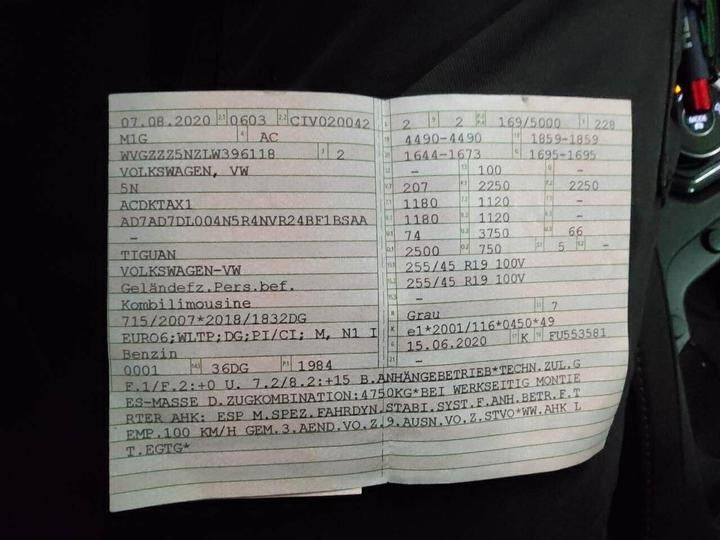 07.08.2020 2.1 0603 2.2 CIV020042
M1G 4 AC
WVGZZZ5NZLW396118 3 2
VOLKSWAGEN, VW
5N
ACDKTAX1
AD7AD7DL004N5R4NVR24BF1BSAA
-
TIGUAN
VOLKSWAGEN-VW
Geländefz.Pers.bef.
Kombilimousine
715/2007*2018/1832DG
EURO6;WLTP;DG;PI/CI; M, N1 I
Benzin
0001 36DG P.1 1984
L 2 9 2 P.2 P.4 169/5000 T 228
18 4490-4490 19 1859-1859
20 1644-1673 G 1695-1695
- 100 -
207 2250 2250
1180 1120 -
1180 1120 -
74 3750 66
2500 750 5 -
255/45 R19 100V
255/45 R19 100V
-
Grau 7
e1*2001/116*0450*49
15.06.2020 17 K 16 FU553581
21 -
F.1/F.2:+0 U. 7.2/8.2:+15 B.ANHÄNGEBETRIEB*TECHN.ZUL.G
ES-MASSE D.ZUGKOMBINATION:4750KG*BEI WERKSEITIG MONTIE
RTER AHK: ESP M.SPEZ.FAHRDYN.STABI.SYST.F.ANH.BETR.F.T
EMP.100 KM/H GEM.3.AEND.VO.Z.9.AUSN.VO.Z.STVO*WW.AHK L
T.EGTG*
MODE